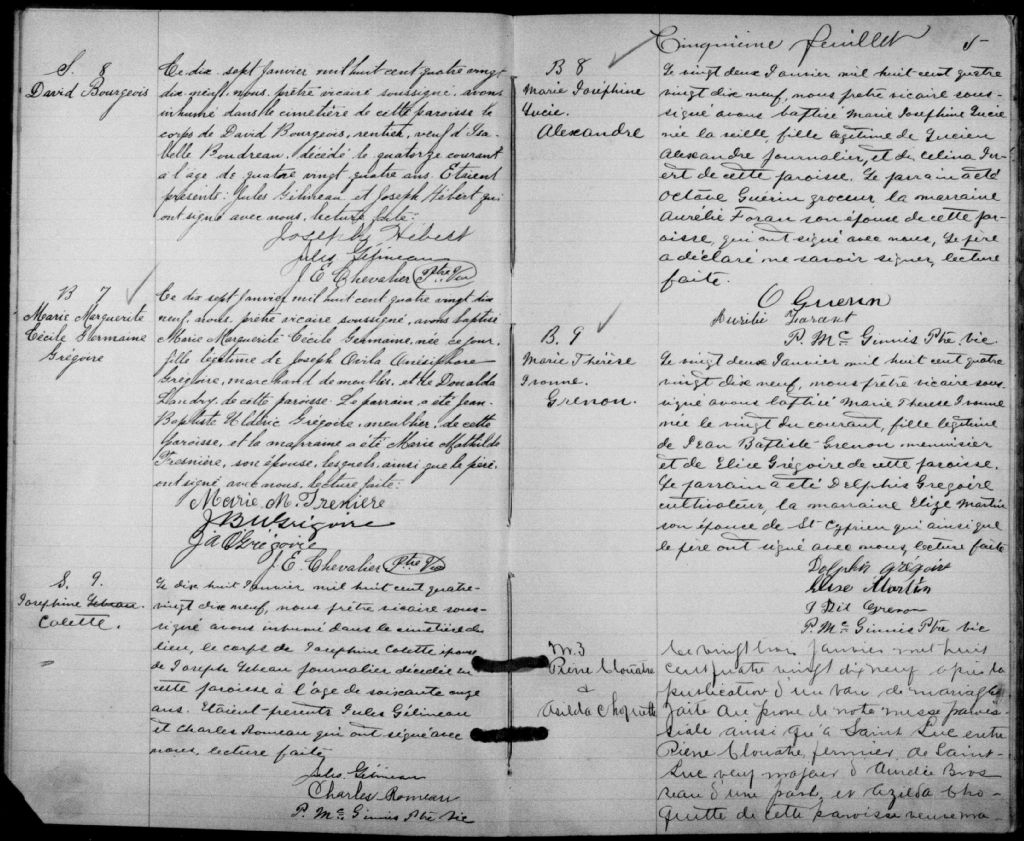 S. 8
David Bourgeois
Ce dix sept Janvier mil huit cent quatre vingt
dix neuf, nous, prêtre vicaire soussigné, avons
inhumé dans le cimetière de cette paroisse le
corps de David Bourgeois, rentier, veuf d'Isa-
belle Boudreau, décédé le quatorze courant
à l'age de quatre vingt quatre ans. Etaient
présents: Jules Gélineau et Joseph Hébert qui
ont signé avec nous, lecture faite:
Joseph Hébert
Jules Gélineau
J. E. Chevalier Ptre Vic
B 7
Marie Marguerite
Cécile Germaine
Grégoire
Ce dix sept Janvier mil huit cent quatre vingt dix
neuf, nous, prêtre vicaire soussigné, avons baptisé
Marie Marguerite Cécile Germaine, née ce jour,
fille légitime de Joseph Ovila Onésiphore
Grégoire, marchand de meubles, et de Donalda
Landry, de cette paroisse. Le parrain a été Jean-
Baptiste Grégoire, meublier, de cette
paroisse, et la marraine a été Marie Mathilde
Fresnière, son épouse, lesquels, ainsi que le père,
ont signé avec nous, lecture faite:
Marie M. Freniere
J B W Grégoire
J A O Grégoire
J. E. Chevalier Ptre Vic
S. 9.
Josephine Lebeau
Colette.
Le dix huit Janvier mil huit cent quatre-
vingt dix neuf, nous prêtre vicaire sous-
signé avons inhumé dans le cimetière du
lieu, le corps de Josephine Colette épouse
de Joseph Lebeau journalier décédée en
cette paroisse à l'âge de soixante onze
ans. Etaient présents Jules Gélineau
et Charles Romeau qui ont signé avec
nous, lecture faite
Jules Gélineau
Charles Romeau
P. Mc Ginnis Ptre Vic
Cinquième feuillet 5
B 8
Marie Joséphine
Lucie.
Alexandre
Le vingt deux Janvier mil huit cent quatre
vingt dix neuf, nous prêtre vicaire sous-
signé avons baptisé Marie Josephine Lucie
née la veille, fille légitime de Lucien
Alexandre journalier, et de Celina
de cette paroisse. Le parrain a été
Octave Guérin groceur, la marraine
Aurélie Foran son épouse de cette pa-
roisse, qui ont signé avec nous, Le père
a déclaré ne savoir signer, lecture
faite.
O Guerin
Aurélie
P. Mc Ginnis Ptre vic
B. 9
Marie Thérèse
Ivonne.
Grenon.
Le vingt deux Janvier mil huit cent quatre
vingt dix neuf, nous prêtre vicaire sous-
signé avons baptisé Marie Thérèse Ivonne
née le vingt du courant, fille légitime
de Jean Baptiste Grenon menuisier
et de Elise Grégoire de cette paroisse.
Le parrain a été Delphis Grégoire
cultivateur, la marraine Elize Martin
son épouse de St Cyprien qui ainsi que
le père ont signé avec nous, lecture faite
Delphis Grégoire
Elise Martin
J Bte Grenon
P. Mc Ginnis Ptre Vic
M. 3
Pierre Clouatre
&
Asilda Choquette
Le vingt trois Janvier mil huit
cent quatre vingt dix neuf après la
publication d'un ban de mariage
faite au prone de notre messe parois-
siale ainsi qu'à Saint Luc entre
Pierre Clouatre, fermier, de Saint-
Luc veuf majeur d'Aurélie Bros
seau d'une part, et Azilda Cho-
quette de cette paroisse veuve ma-